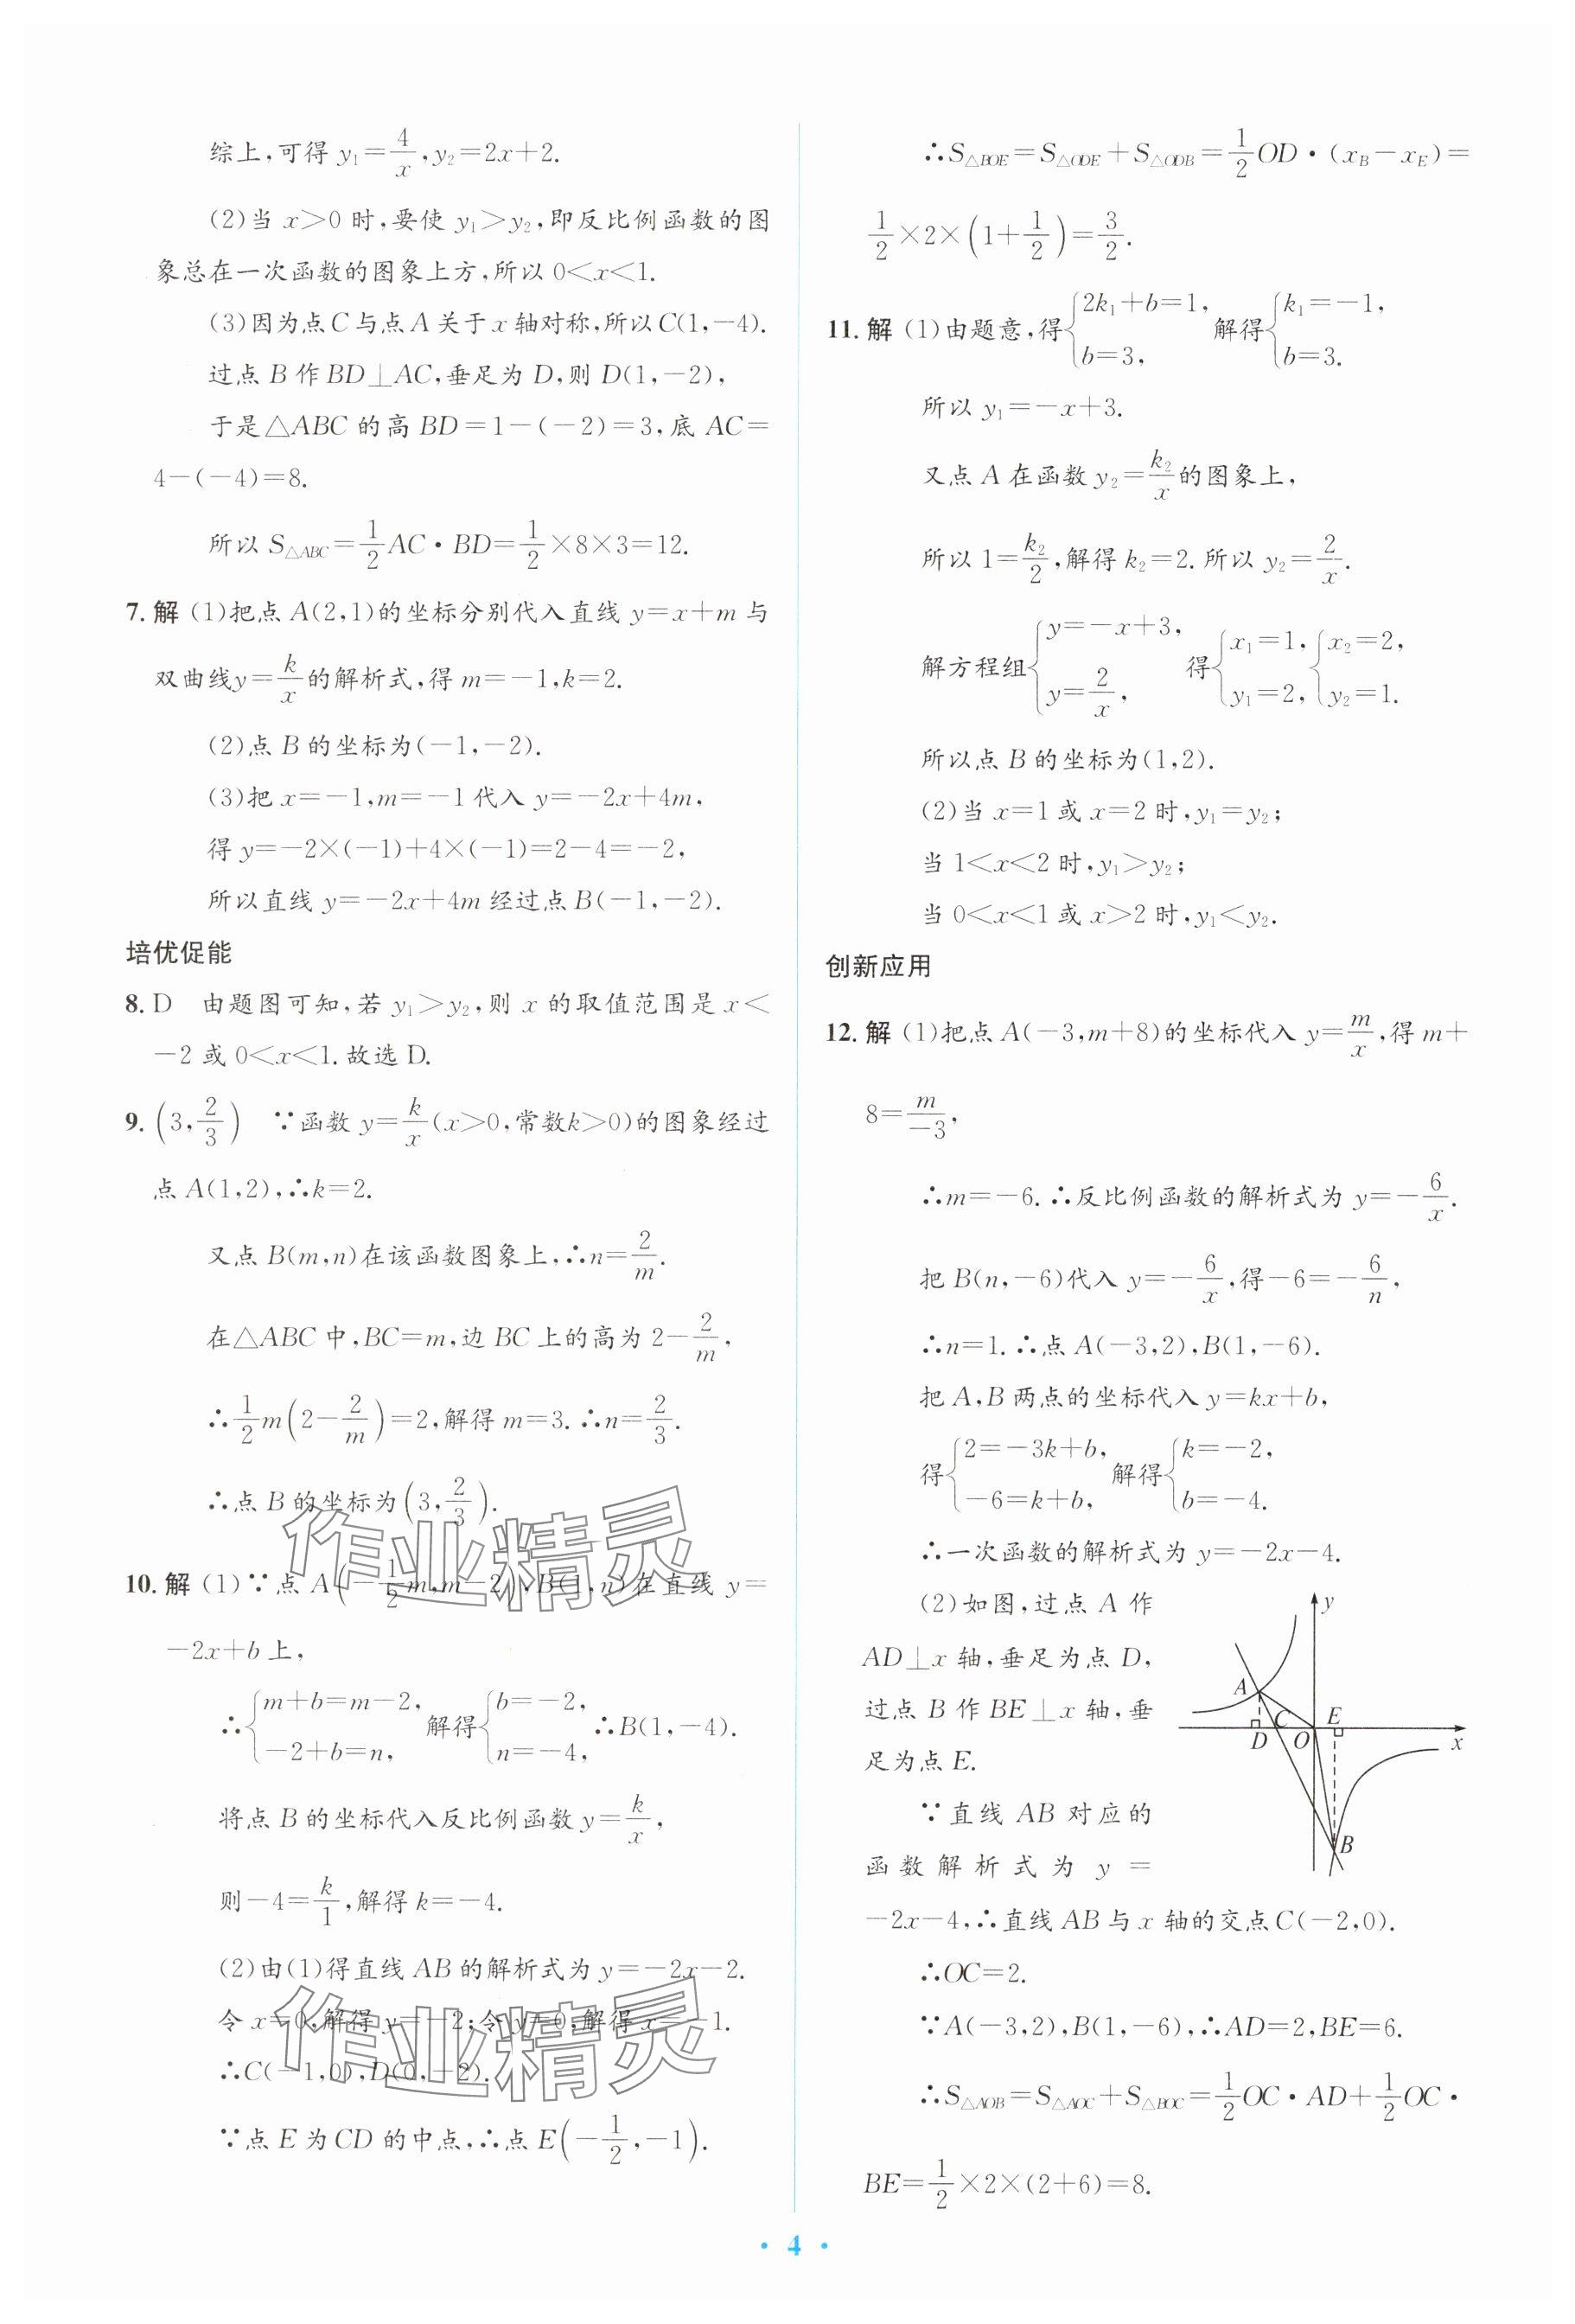 综上,可得 y₁=4/x,y₂=2x+2.
(2)当 x>0 时,要使 y₁>y₂,即反比例函数的图
象总在一次函数的图象上方,所以 0<x<1.
(3)因为点C与点A关于x轴对称,所以C(1,-4).
过点 B 作 BD⊥AC,垂足为 D,则 D(1,-2),
于是△ABC 的高 BD=1-(-2)=3,底 AC=
4-(-4)=8.
所以 S△ABC=1/2AC·BD=1/2×8×3=12.
7. 解 (1)把点 A(2,1)的坐标分别代入直线 y=x+m 与
双曲线y=k/x的解析式,得 m=-1,k=2.
(2)点 B 的坐标为(-1,-2).
(3)把 x=-1,m=-1 代入 y=-2x+4m,
得 y=-2×(-1)+4×(-1)=2-4=-2,
所以直线 y=-2x+4m 经过点 B(-1,-2).
培优促能
8. D 由题图可知,若 y₁>y₂,则 x 的取值范围是 x<
-2 或 0<x<1.故选 D.
9. (3,2/3) ∵函数 y=k/x(x>0,常数k>0)的图象经过
点 A(1,2),∴k=2.
又点 B(m,n)在该函数图象上,∴n=2/m.
在△ABC 中,BC=m,边 BC 上的高为 2-2/m,
∴1/2m(2-2/m)=2,解得 m=3.∴n=2/3.
∴点 B 的坐标为(3,2/3).
10. 解 (1)∵点 A(-1/2m,m-2),B(1,n)在直线 y=
-2x+b 上,
∴{m+b=m-2,-2+b=n,解得{b=-2,n=-4,∴B(1,-4).
将点 B 的坐标代入反比例函数 y=k/x,
则-4=k/1,解得 k=-4.
(2)由(1)得直线 AB 的解析式为 y=-2x-2.
令 x=0,解得 y=-2;令 y=0,解得 x=-1.
∴C(-1,0),D(0,-2).
∵点 E 为 CD 的中点,∴点 E(-1/2,-1).
∴S△BOE=S△ODE+S△ODB=1/2OD·(x_B-x_E)=
1/2×2×(1+1/2)=3/2.
11. 解 (1)由题意,得{2k₁+b=1,b=3,解得{k₁=-1,b=3.
所以 y₁=-x+3.
又点 A 在函数 y₂=k₂/x的图象上,
所以 1=k₂/2,解得 k₂=2.所以 y₂=2/x.
解方程组{y=-x+3,y=2/x,得{x₁=1,y₁=2,{x₂=2,y₂=1.
所以点 B 的坐标为(1,2).
(2)当 x=1 或 x=2 时,y₁=y₂;
当 1<x<2 时,y₁>y₂;
当 0<x<1 或 x>2 时,y₁<y₂.
创新应用
12. 解 (1)把点 A(-3,m+8)的坐标代入 y=m/x,得 m+
8=m/-3,
∴m=-6.∴反比例函数的解析式为 y=-6/x.
把 B(n,-6)代入 y=-6/x,得-6=-6/n,
∴n=1.∴点 A(-3,2),B(1,-6).
把 A,B 两点的坐标代入 y=kx+b,
得{2=-3k+b,-6=k+b,解得{k=-2,b=-4.
∴一次函数的解析式为 y=-2x-4.
(2)如图,过点 A 作
AD⊥x 轴,垂足为点 D,
过点 B 作 BE⊥x 轴,垂
足为点 E.
∵直线 AB 对应的
函数解析式为 y=
-2x-4,∴直线 AB 与 x 轴的交点 C(-2,0).
y
A
C
E
D
O
x
B
∴OC=2.
∵A(-3,2),B(1,-6),∴AD=2,BE=6.
∴S△AOB=S△AOC+S△BOC=1/2OC·AD+1/2OC·
BE=1/2×2×(2+6)=8.
作业精灵
作业精灵
·4·